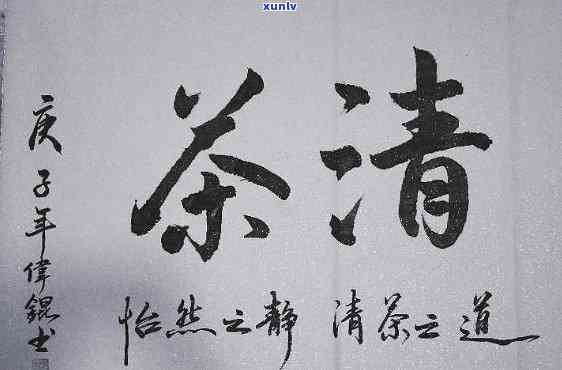 xunlv
清茶
道之茶清 静之然怡
庚子年偉錕书